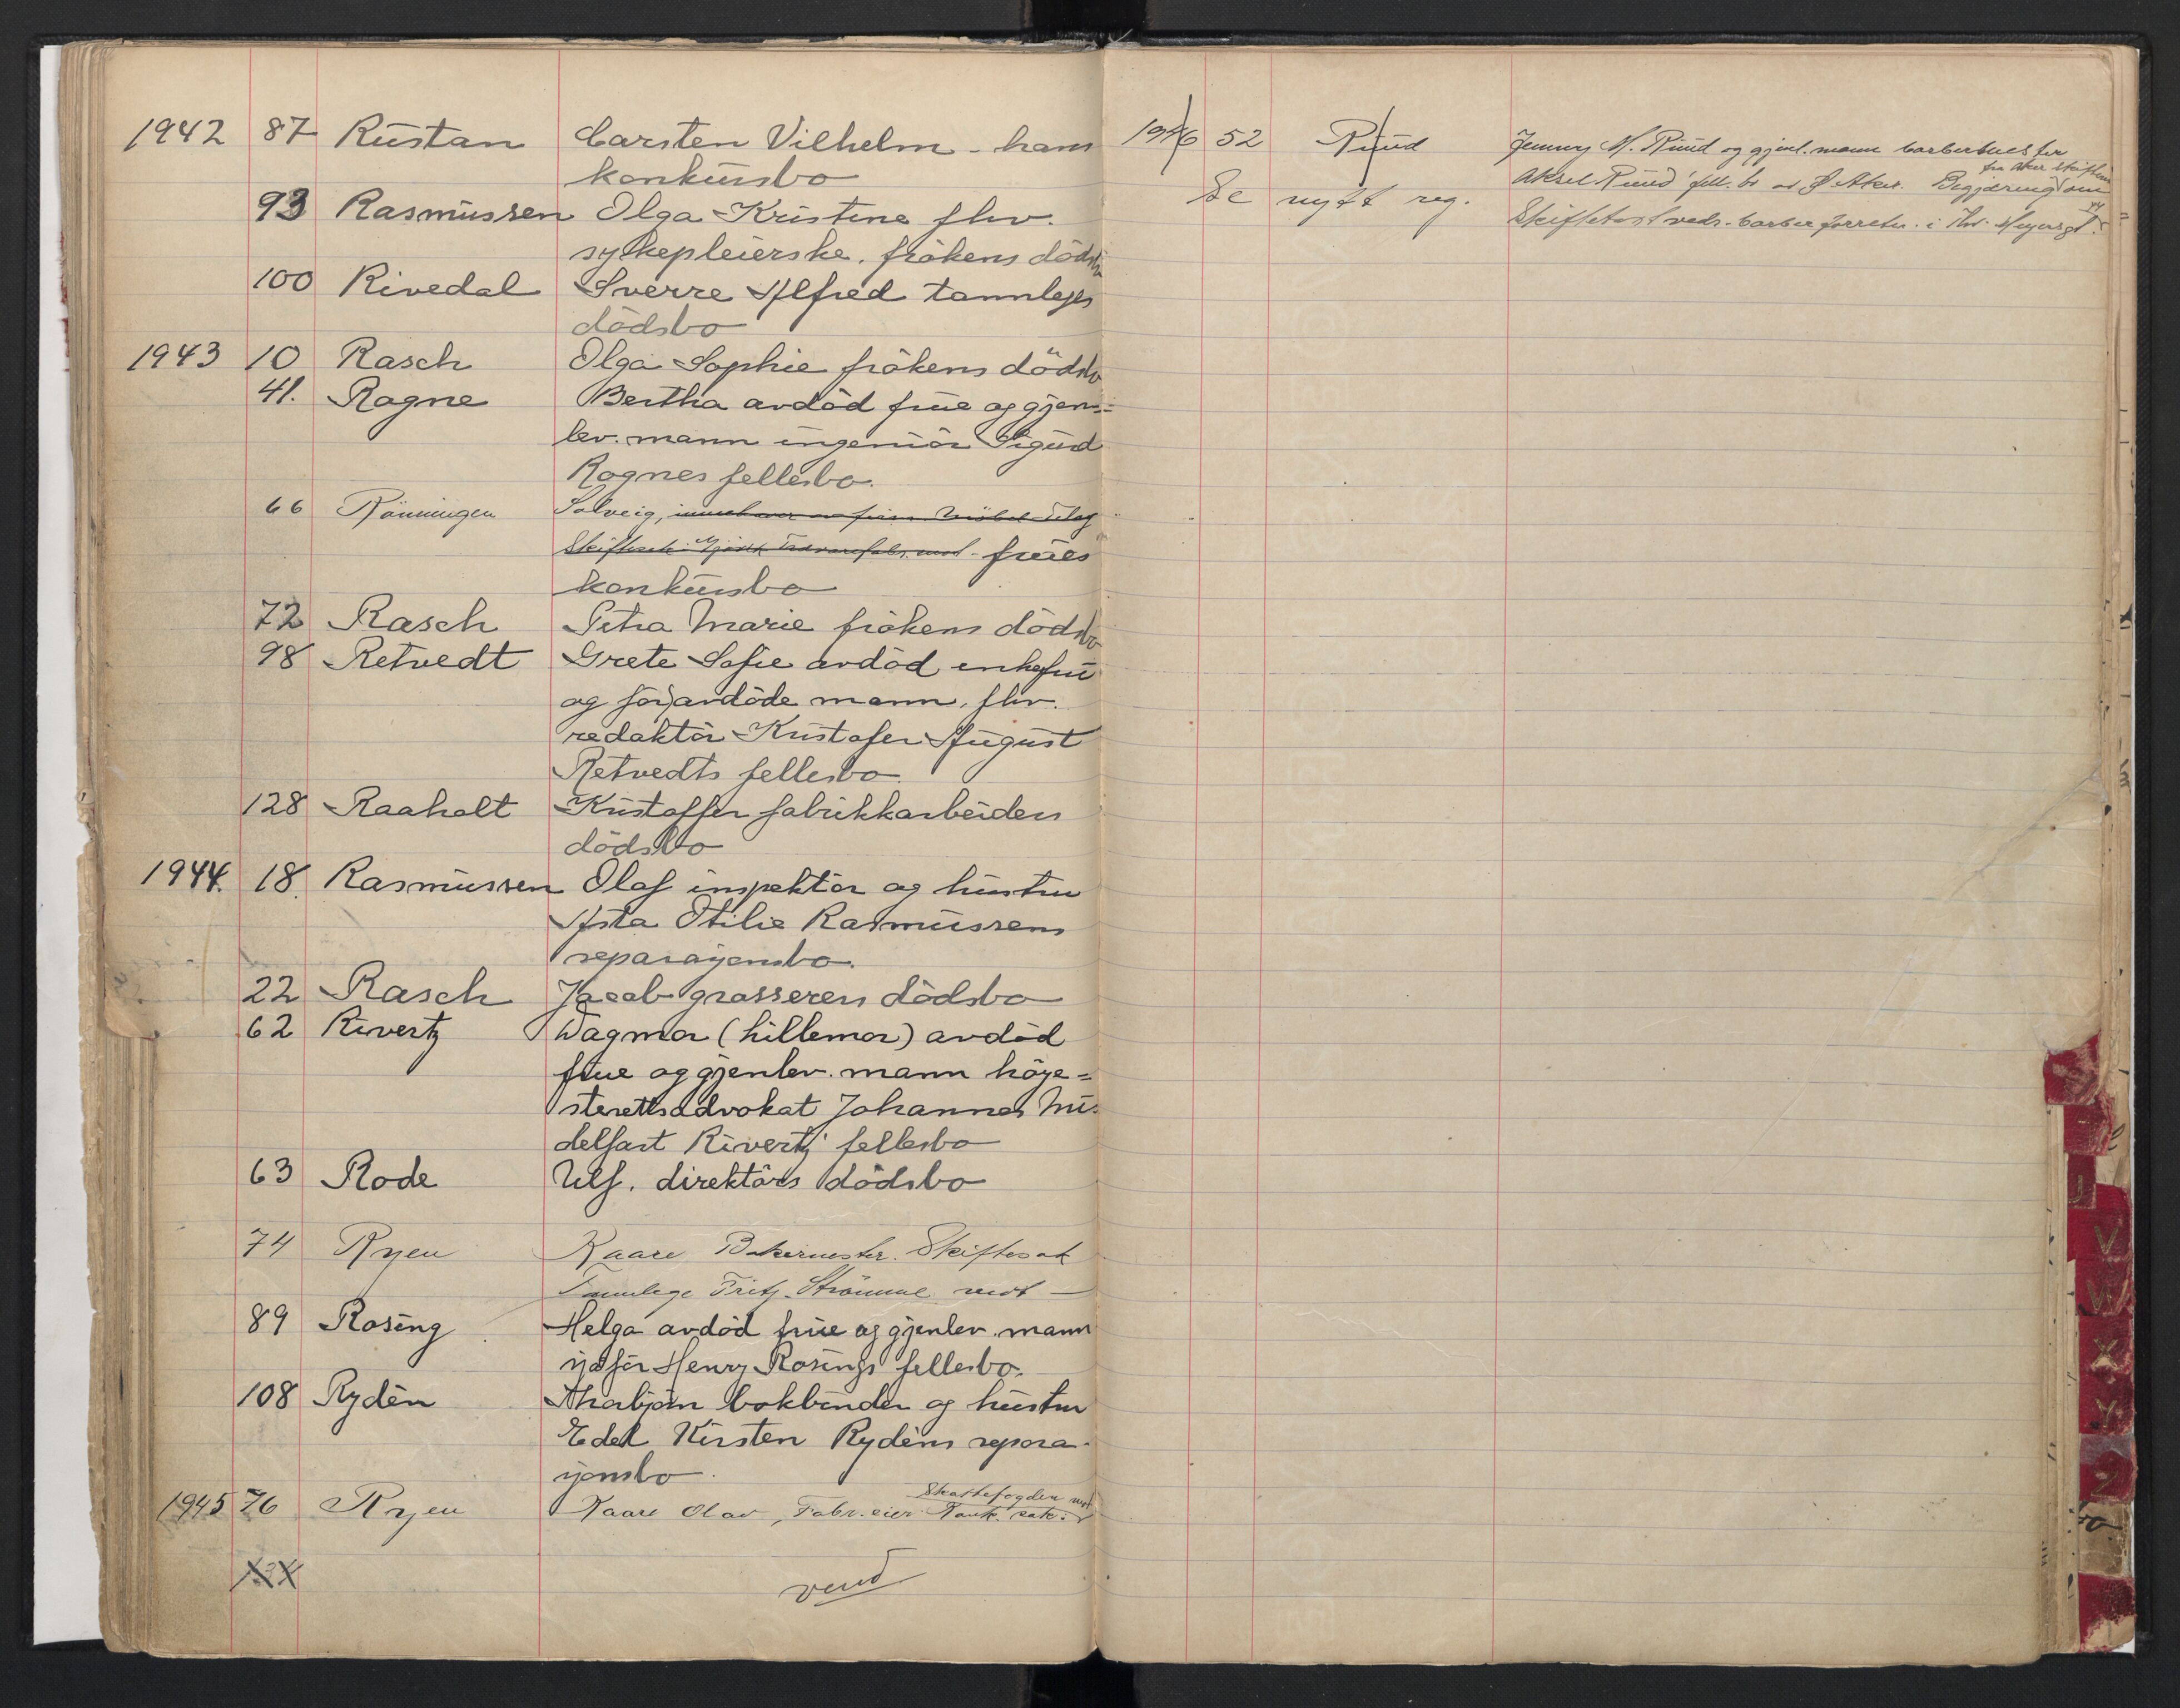 1942 87 Rustan Carsten Vilhelm - hans
konkursbo
93 Rasmussen Olga Kristine fhv.
sykepleierske. frökens dödsbo
100 Rivedal Sverre Alfred tannleges
dödsbo
1943 10 Rasch Olga Sophie frökens dödsbo
41. Rogne Bertha avdöd frue og gjen=
lev. mann ingeniör Sigurd
Rognes fellesbo.
66 Rönningen Solveig,
frues
konkursbo
72 Rasch Petra Marie frökens dödsbo
98 Retvedt Grete Sofie avdöd enkefru
og foravdöde mann, fhv.
redaktör Kristofer August
Retvedts fellesbo
128 Raaholt Kristoffer fabrikkarbeiders
dödsbo
1944. 18. Rasmussen Olaf inspektör og hustru
Asta Otilie Rasmussens
separasjonsbo.
22 Rasch Jacob grosserers dödsbo
62 Rivertz Dagmar (lillemor) avdöd
frue og gjenlev. mann höye=
sterettsadvokat Johannes Mi-
delfart Rivertz' fellesbo
63 Rode Ulf. direktörs dödsbo
74 Ryen Kaare Bakermester. Skiftesak
Tannlege Fritz Strömme mot
89 Rosing Helga avdöd frue og gjenlev. mann
sjåför Henry Rosings fellesbo.
108 Rydén Thorbjörn bokbinder og hustru
Edel Kirsten Rydéns separa-
sjonsbo.
1945 76 Ryen Kaare Olav, Fabr. eier Skattefogden mot
Tank. sak.
vend
1946 52 Ruud Jenny M. Ruud og gjenl. mann barbermester
Aksel Ruud fell. bo av Ö. Aker. Begjæring om
fra Aker skifterett
Se nytt reg. Skiftetakst veds. barber forretn. i Thv. Meyersgt.